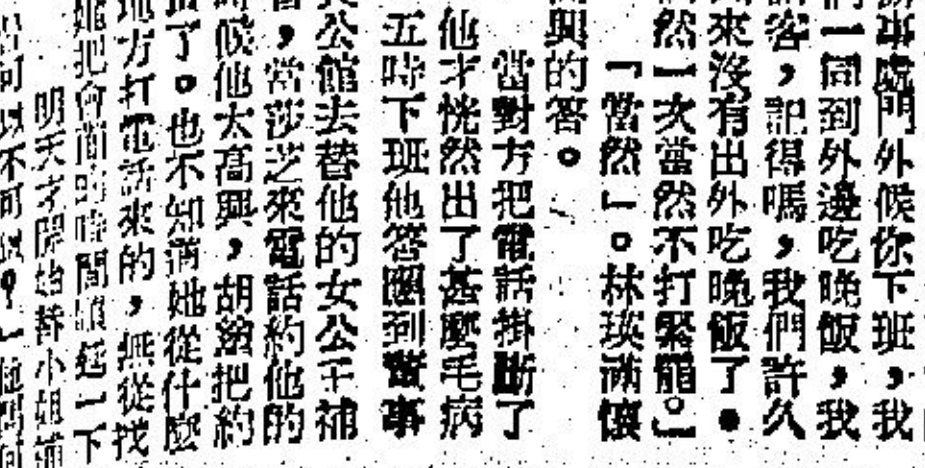 辦事處門外候你下班,我
們一同到外邊吃晚飯,我
請客,記得嗎,我們許久
來沒有出外吃晚飯了。
然一次當然不打緊罷。」
「當然」。林瑛滿懷
興的答。
當對方把電話掛斷了
他才恍然出了甚麼毛病
五時下班他答應到董事
公館去替他的女公子補
,當莎芝來電話約他的
時候他太高興,胡塗把約
了。也不知道她從什麼
地方打電話來的,無從找
她把會面時間順延一下
明天才開始替小姐補
可以不可以?」他